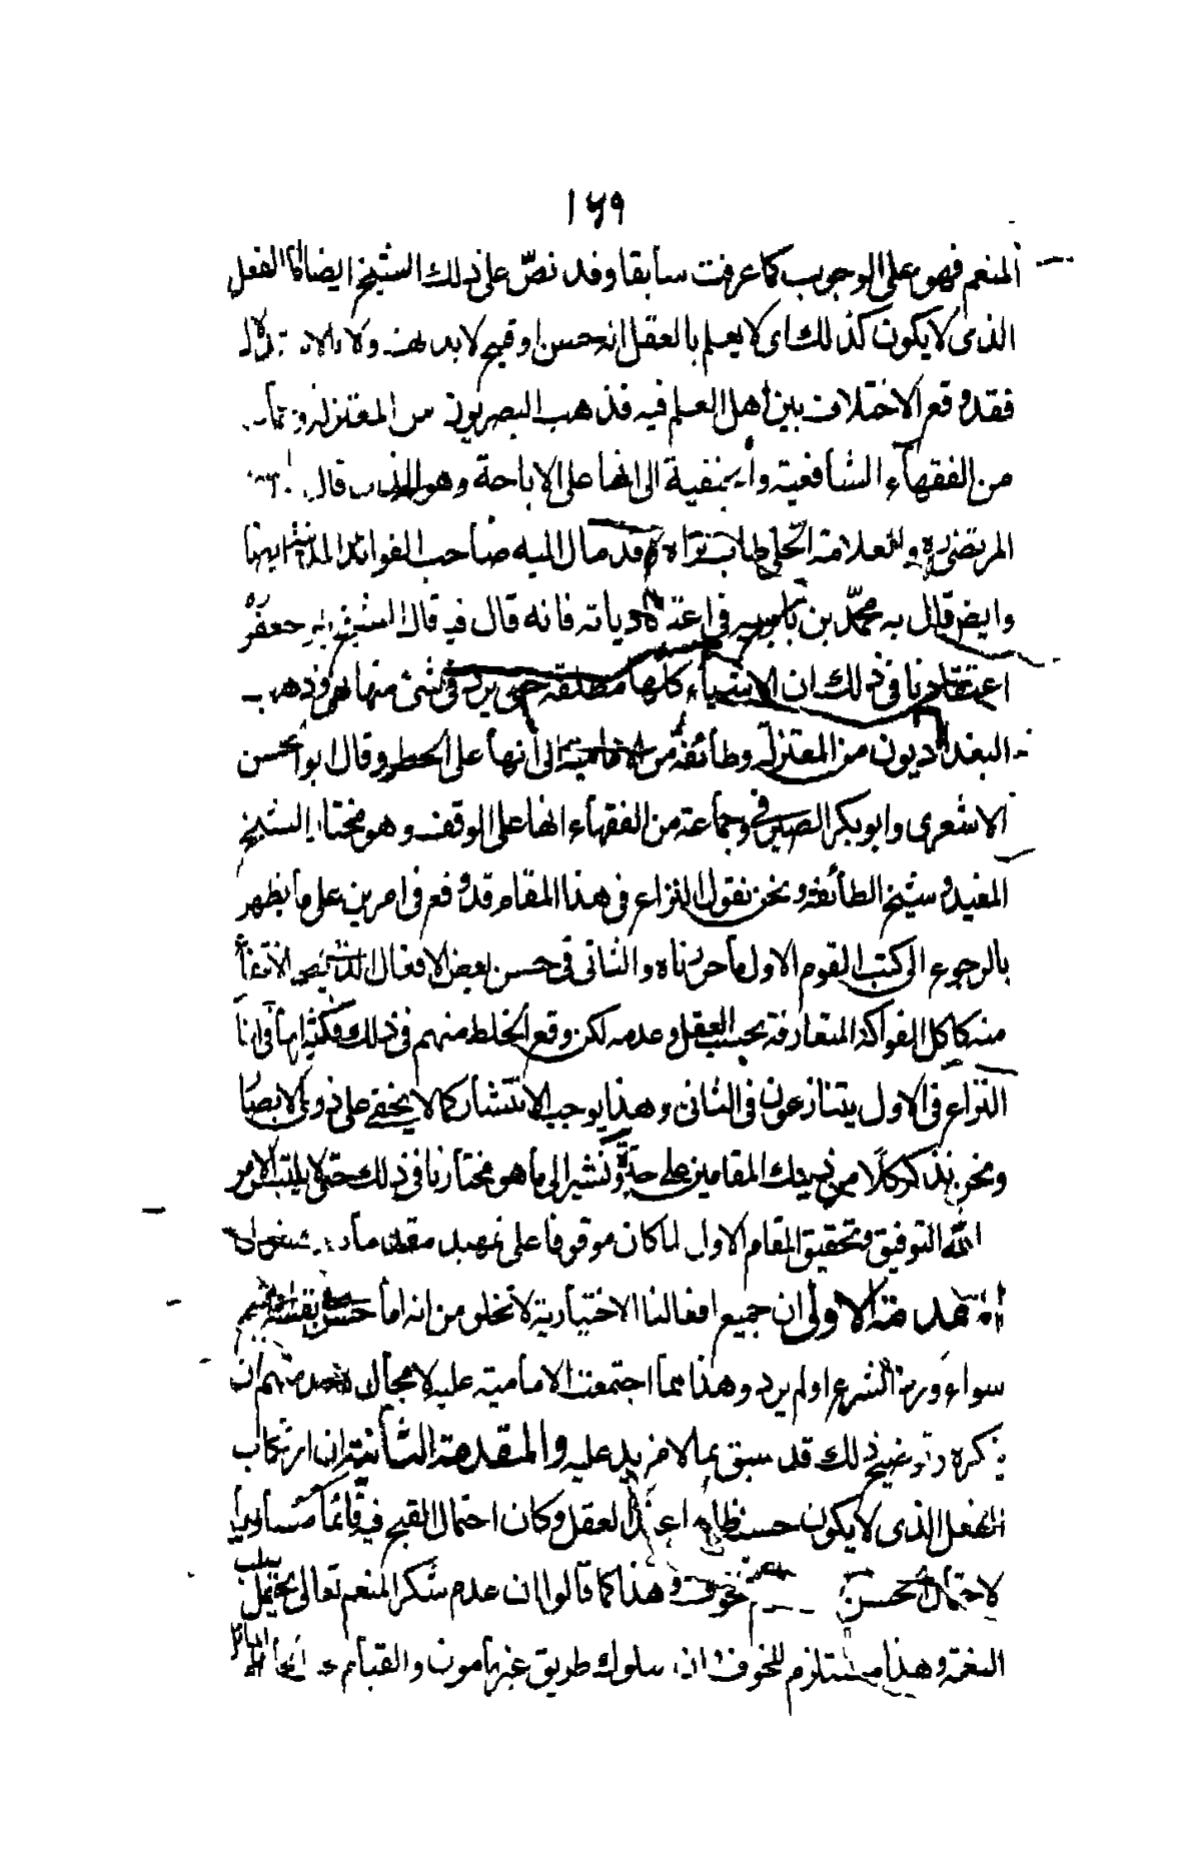 ١٦٩
المنعم فهو على الوجوب كما عرفت سابقا وقد نصّ على ذلك الشيخ ايضا اما الفعل
الذى لا يكون كذلك اى لا يعلم بالعقل انه حسن او قبيح لا بد
فقد وقع الاختلاف بين اهل العلم فيه فذهب البصريون من المعتزلة و
من الفقهاء الشافعية والحنفية الى انها على الاباحة وهو الذى قال
المرتضى ره والعلامة الحلى طاب ثراه وقد مال اليه صاحب الفوائد المدنية
وايضا قال به محمّد بن بابويه فى اعتقادياته فانه قال فيه قال الشيخ ابو جعفر ره
اعتقادنا فى ذلك ان الاشياء كلها مطلقة حتى يرد فى شئ منها نهى وذهب
البغداديون من المعتزلة وطائفة من الامامية الى انها على الحظر وقال ابو الحسن
الاشعرى وابو بكر الصيرفى وجماعة من الفقهاء انها على الوقف وهو مختار الشيخ
المفيد وشيخ الطائفة ونحن نقول النزاع فى هذا المقام قد وقع فى امرين على ما يظهر
بالرجوع الى كتب القوم الاول ما حررناه والثانى فى حسن بعض الافعال
منه كاكل الفواكه المتعارفة بحسب العقل وعدمه لكن وقع الخلط منهم فى ذلك فكثيرا ما
النزاع فى الاول يتنازعون فى الثانى وهذا يوجب الانتشار كما لا يخفى على ذوى الابصار
ونحن نذكر كلا من ذينك المقامين على حدة ونشير الى ما هو مختارنا فى ذلك حتى لا يلتبس الامر
الله التوفيق وتحقيق المقام الاول لما كان موقوفا على تمهيد مقدمات
المقدمة الاولى ان جميع افعالنا الاختيارية لا تخلو من انه اما حسن
سواء ورد الشرع او لم يرد وهذا مما اجتمعت الامامية عليه لا مجال لاحد منهم ان
ينكره وتوضيح ذلك قد سبق بما لا مزيد عليه والمقدمة الثانية ان ارتكاب
الفعل الذى لا يكون حسنه ظاهرا عند العقل وكان احتمال القبح فيه قائما مساويا
لاحتمال الحسن وهذا كما قالوا ان عدم شكر المنعم تعالى يحتمل سلب
النعمة وهذا مستلزم للخوف سلوك طريق غير مأمون